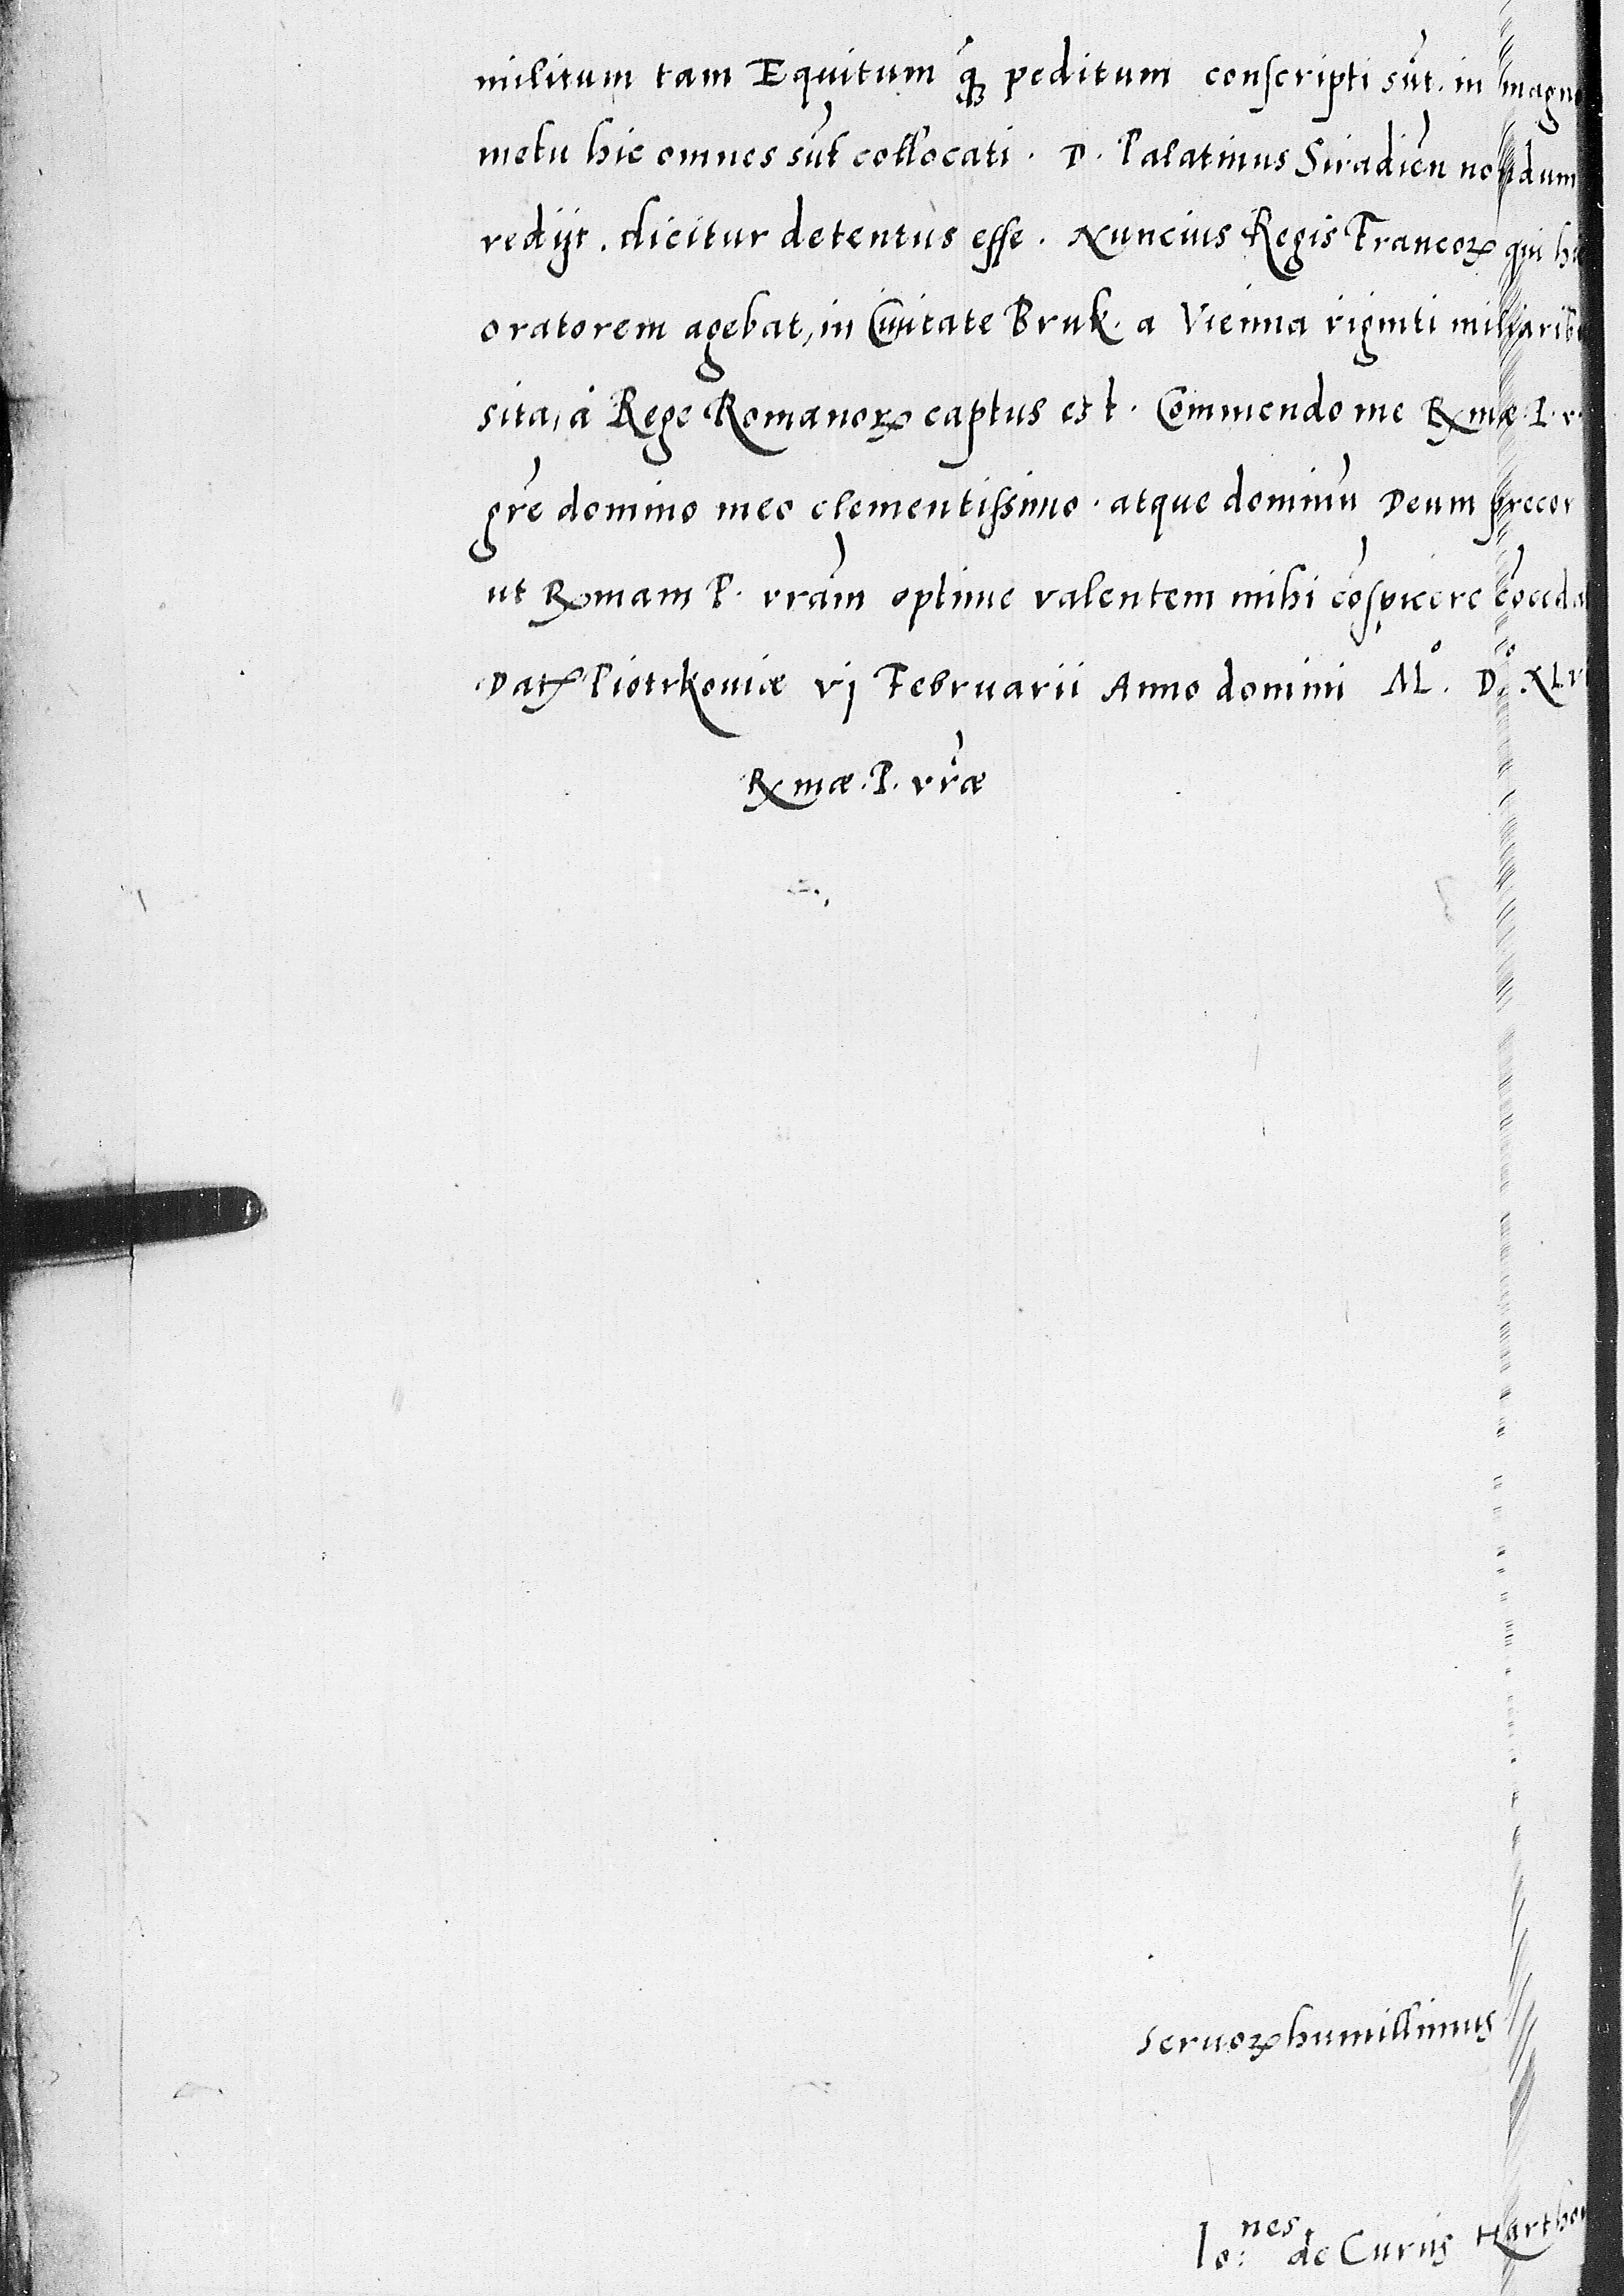 militum tam Equitum q̃ꝫ peditum conscripti sũt. in magn
metu hic omnes sũt collocati. D. Palatinus Siradieñ nondum
redijt. dicitur detentus esse. Nuncius Regis Francoꝝ qui
oratorem agebat, in Ciuitate Bruk. a Vienna viginti miliarib
sita, á Rege Romanoꝝ captus est. Commendo me Rmæ. P. v
gr̃e domino meo clementissimo. atque dominũ Deum precor
ut Romam P. vrãm optime valentem mihi cõspicere cõceda
Datꝝ Piotrkouiæ vj Februarii Anno domini M.° D.° XLV
Rmæ. P. vr̃æ
Seruoꝝ humillimus
Io:nes de Curijs Hartho